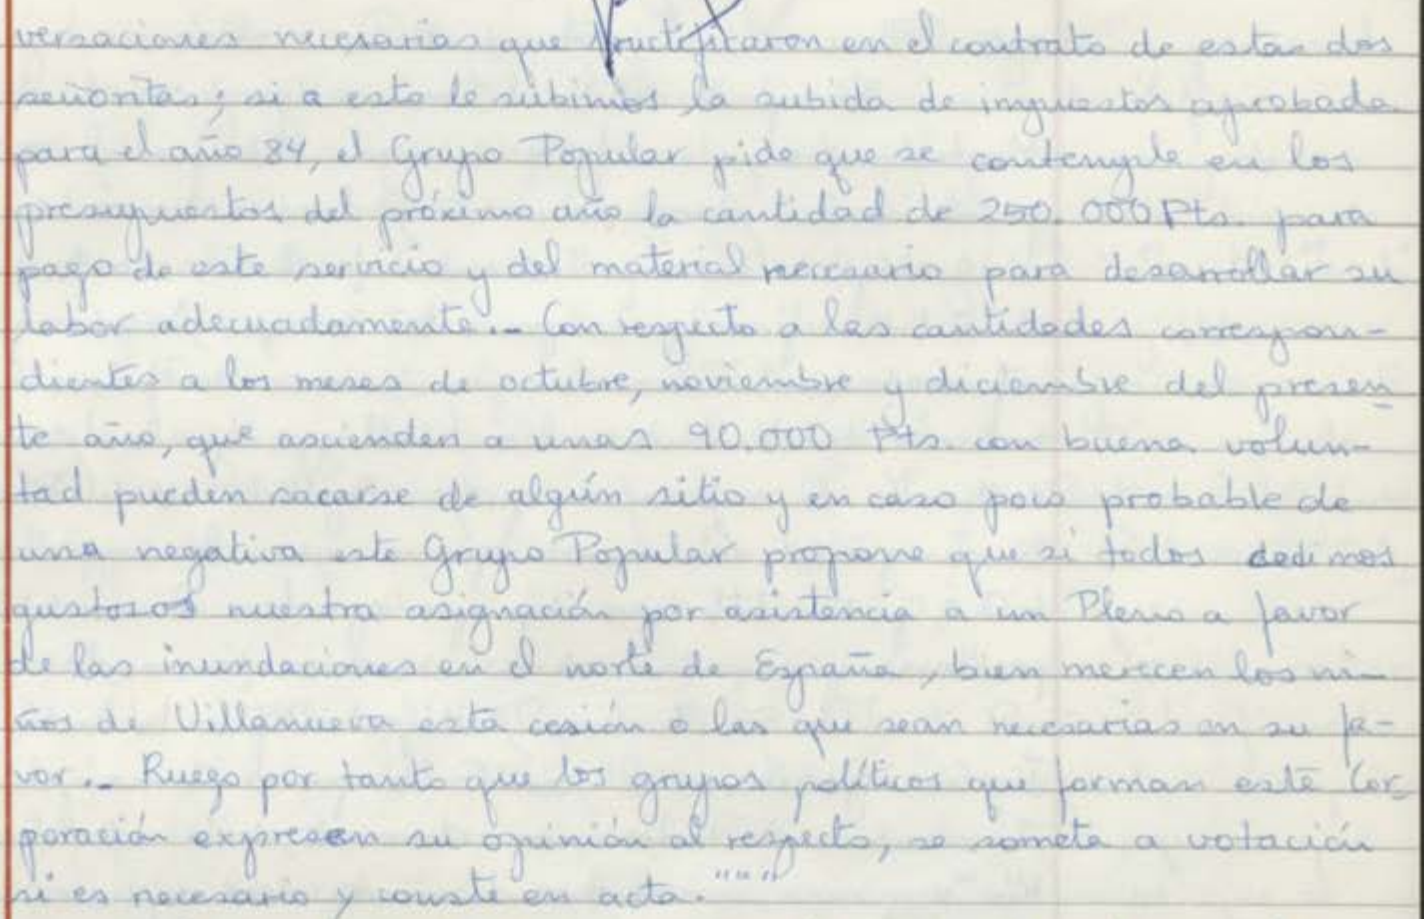 versaciones necesarias que fructificaron en el contrato de estas dos
señoritas; si a esto le subimos la subida de impuestos aprobada
para el año 84, el Grupo Popular pide que se contemple en los
presupuestos del próximo año la cantidad de 250.000 Pts. para
pago de este servicio y del material necesario para desarrollar su
labor adecuadamente.- Con respecto a las cantidades correspon-
dientes a los meses de octubre, noviembre y diciembre del presen
te año, que ascienden a unas 90.000 Pts. con buena volun-
tad pueden sacarse de algún sitio y en caso poco probable de
una negativa este Grupo Popular propone que si todos cedimos
gustosos nuestra asignación por asistencia a un Pleno a favor
de las inundaciones en el norte de España, bien merecen los ni-
ños de Villanueva esta cesión o las que sean necesarias en su fa-
vor.- Ruego por tanto que los grupos políticos que forman esté Cor-
poración expresen su opinión al respecto, se someta a votación
si es necesario y conste en acta.""""